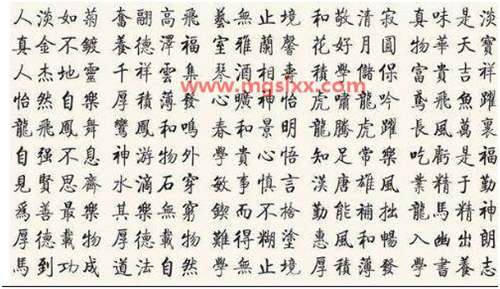 人淡如菊奮翮高飛藝無止境和敬清寂真味是淡
真金不鍍養德澤福室雅蘭馨花好月圓物華天寶
人杰地靈千祥雲集酒相積學儲保富貴吉祥
怡然自樂厚積薄發心曠神怡虎嘯龍吟鳶飛魚躍
龍飛鳳舞鸞鳳和鳴春和景明龍騰虎躍長風萬裏
自強不息神游物外學貴心悟知足常樂吃虧是福
見賢思齊水滴石穿敏事慎言漢唐雄風業精于勤
爲善最樂其樂無窮鍥而不捨勤能補拙龍馬精神
厚德載物厚德載物難得糊塗惠風和暢入幽出朗
馬到功成道法自然學無止境厚積薄發學書養志
www.mgslxx.com